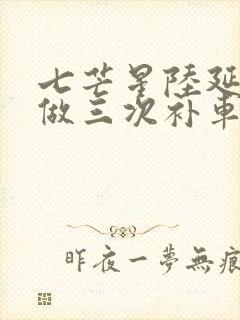 七芒星陸延
做三次补車
昨夜一夢無痕